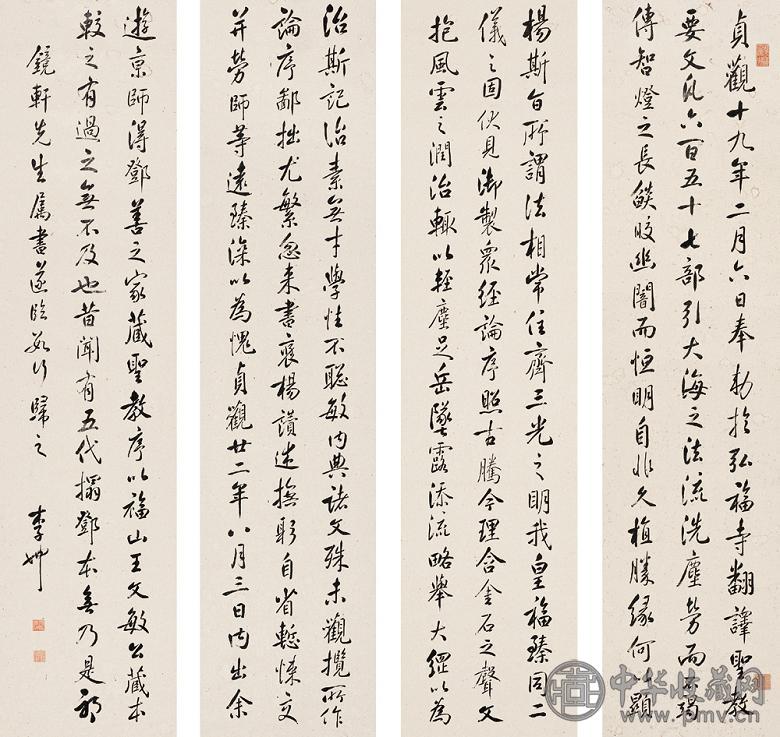 貞觀十九年二月六日奉勅於弘福寺翻譯聖教
要文凡六百五十七部引大海之法流洗塵勞而不竭
傳智燈之長燄皎幽闇而恒明自非久植勝緣何以顯
楊斯旨所謂法相常住齊三光之明我皇福臻同二
儀之固伏見御製衆經論序照古騰今理含金石之聲文
抱風雲之潤治輒以輕塵足岳墜露添流略舉大綱以為
治斯記治素無才學性不聰敏內典諸文殊未觀攬所作
論序鄙拙尤繁忽來書褒楊讚述撫躬自省慙悚交
并勞師等遠臻深以為愧貞觀廿二年八月三日內出余
遊京師得鄧善之家藏聖教序以福山王文敏公藏本
較之有過之無不及也昔聞有五代搨鄧本無乃是
鏡軒先生属書遂臨數行歸之
李
中华收藏网
www.pmv.cn